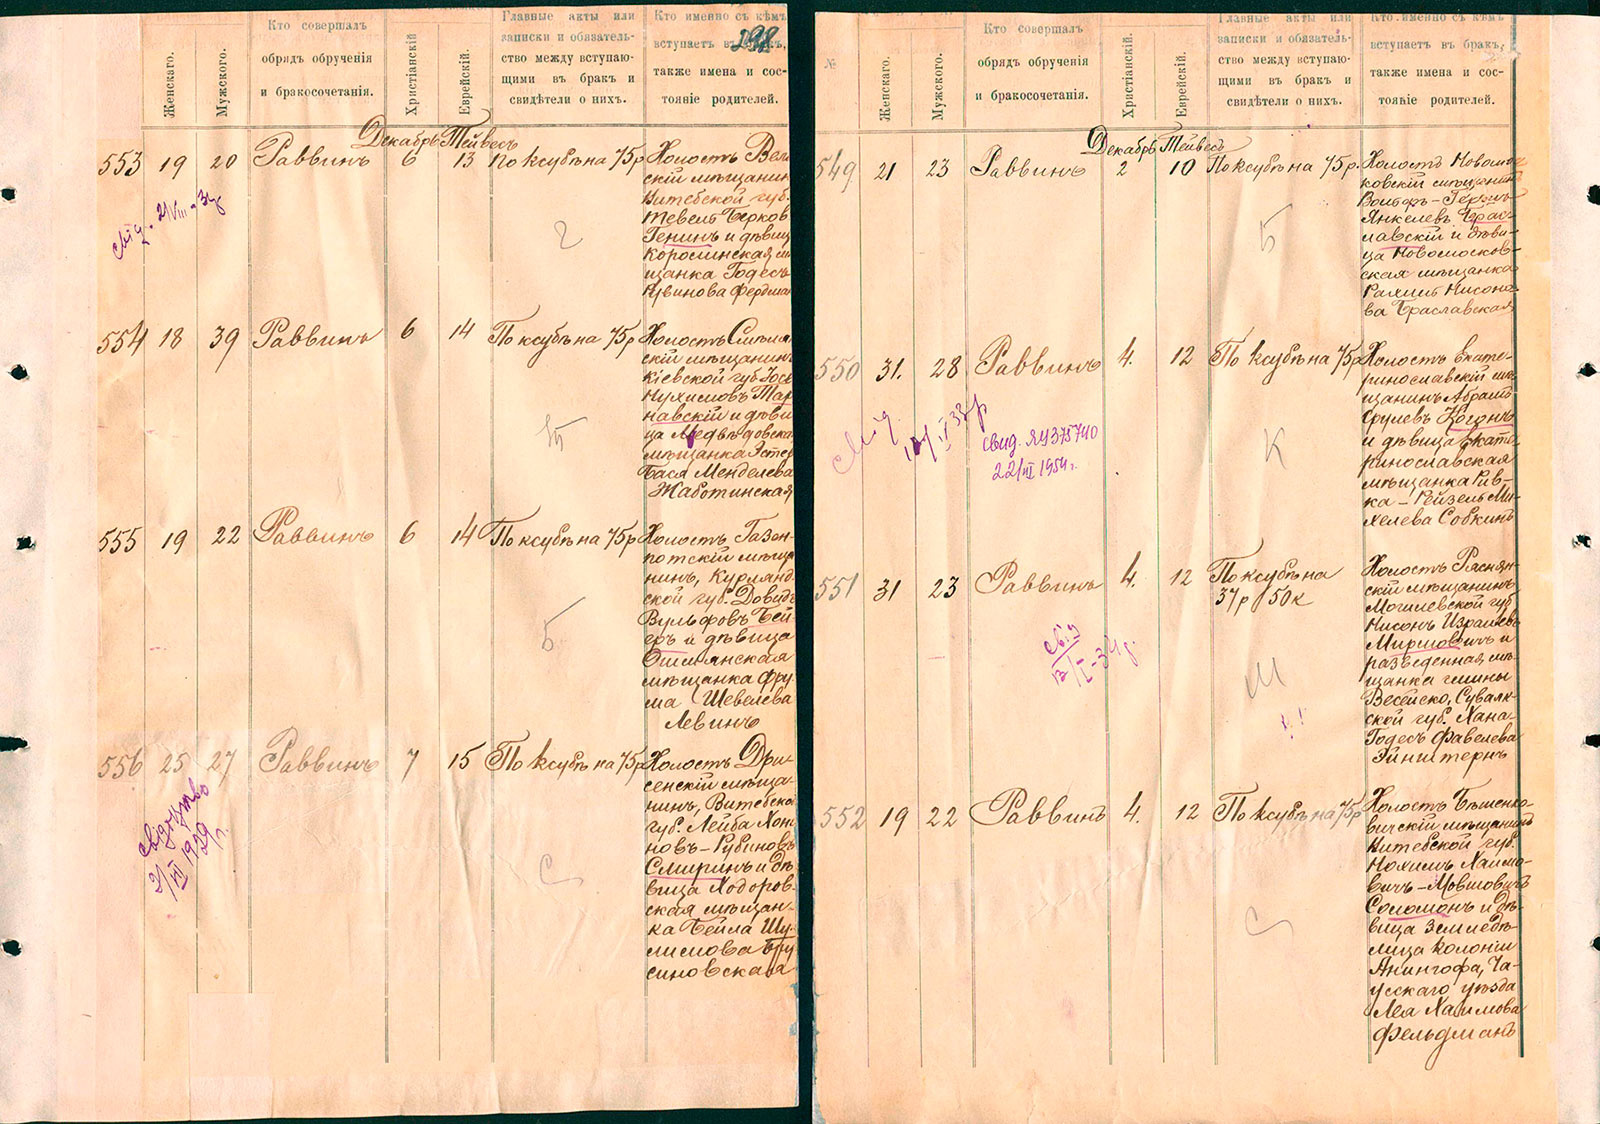 Кто совершалъ
обрядъ обрученія
и бракосочетанія.
Женскаго.
Мужского.
Христіанскій
Еврейскій.
Главные акты или
записки и обязатель-
ство между вступаю-
щими въ бракъ и
свидѣтели о нихъ.
Кто именно съ кѣмъ
вступаетъ въ
также имена и сос-
тояніе родителей.
298
Декабрь Тейвесъ
553 19 20 Раввинъ 6 13 По ксубѣ на 75р
Холостъ
скій мѣщанин
Витебской губ.
Тевель Берков
Генинъ и дѣвиц
Королинская м
щанка Годесъ
Рувинова Фердман
свід. 21/VIII-34
2
554 18 39 Раввинъ 6 14 По ксубѣ на 75р
Холостъ Смѣлян
скій мѣщанинъ
кіевской губ. Іось
Нухимовъ Тар
навскій и дѣви
ца Медвѣдовска
мѣщанка Эстер
Бася Менделева
Жаботинская
555 19 22 Раввинъ 6 14 По ксубѣ на 75р
Холостъ Газен-
потскій мѣща
нинъ, Курлянд
ской губ. Довидъ
Вульфовъ Бей
еръ и дѣвица
Ошмянская
мѣщанка Фру
ма Шевелева
Левинъ
Б
556 25 27 Раввинъ 7 15 По ксубѣ на 75р
Холостъ Дри-
сенскій мѣща-
нинъ, Витебско
губ. Лейба Хон
новъ-Рубиновъ
Смиринъ и дѣ
вица Ходоров-
ская мѣщан-
ка Бейла Шу-
лимова Бру
синовская
свідоцтво
1929 г.
С
№
Женскаго.
Мужского.
Кто совершалъ
обрядъ обрученія
и бракосочетанія.
Христіанскій.
Еврейскій.
Главные акты или
записки и обязатель-
ство между вступаю-
щими въ бракъ и
свидѣтели о нихъ.
Кто именно съ кѣмъ
вступаетъ въ бракъ,
также имена и сос-
тояніе родителей.
Декабрь Тейвесъ
549 21 23 Раввинъ 2 10 По ксубѣ на 75р.
Холостъ Новомос
ковскій мѣщанинъ
Вольфъ-Гершъ
Янкелевъ Брас-
лавскій и дѣви-
ца Новомосков-
ская мѣщанка
Рахиль Нисоно-
ва Браславская
Б
550 31. 28 Раввинъ 4. 12 По ксубѣ на 75р
Холостъ Екате-
ринославскій мѣ-
щанинъ Абрамъ
Срулевъ Коганъ
и дѣвица Екате
ринославская
мѣщанка Рив-
ка-Рейзель Ми-
хелева Собкинъ
свід.
свид. ЯЧ 375740
22/VI 1954 г.
К
551 31 23 Раввинъ 4. 12 По ксубѣ на
37р 50к
Холостъ Ряснян-
скій мѣщанинъ
Могилевской губ
Нисонъ Израилевъ
Мирмовичъ и
разведенная мѣ-
щанка гмины
Вейсее, Сувалк-
ской губ. Хана-
Годесъ Фавелева
Эйнштернъ
свід
12/I-34 г.
Ш
!!
552 19 22 Раввинъ 4. 12 По ксубѣ на 75р
Холостъ Бѣшенко-
вичскій мѣщанинъ
Витебской губ.
Нохимъ Хаимо-
вичъ-Мовшовичъ
Соломонъ и дѣ-
вица Земледѣ-
лица колоніи
Анингофа, Ча-
усскаго уѣзда
Лея Хаимова
Фельдманъ
С